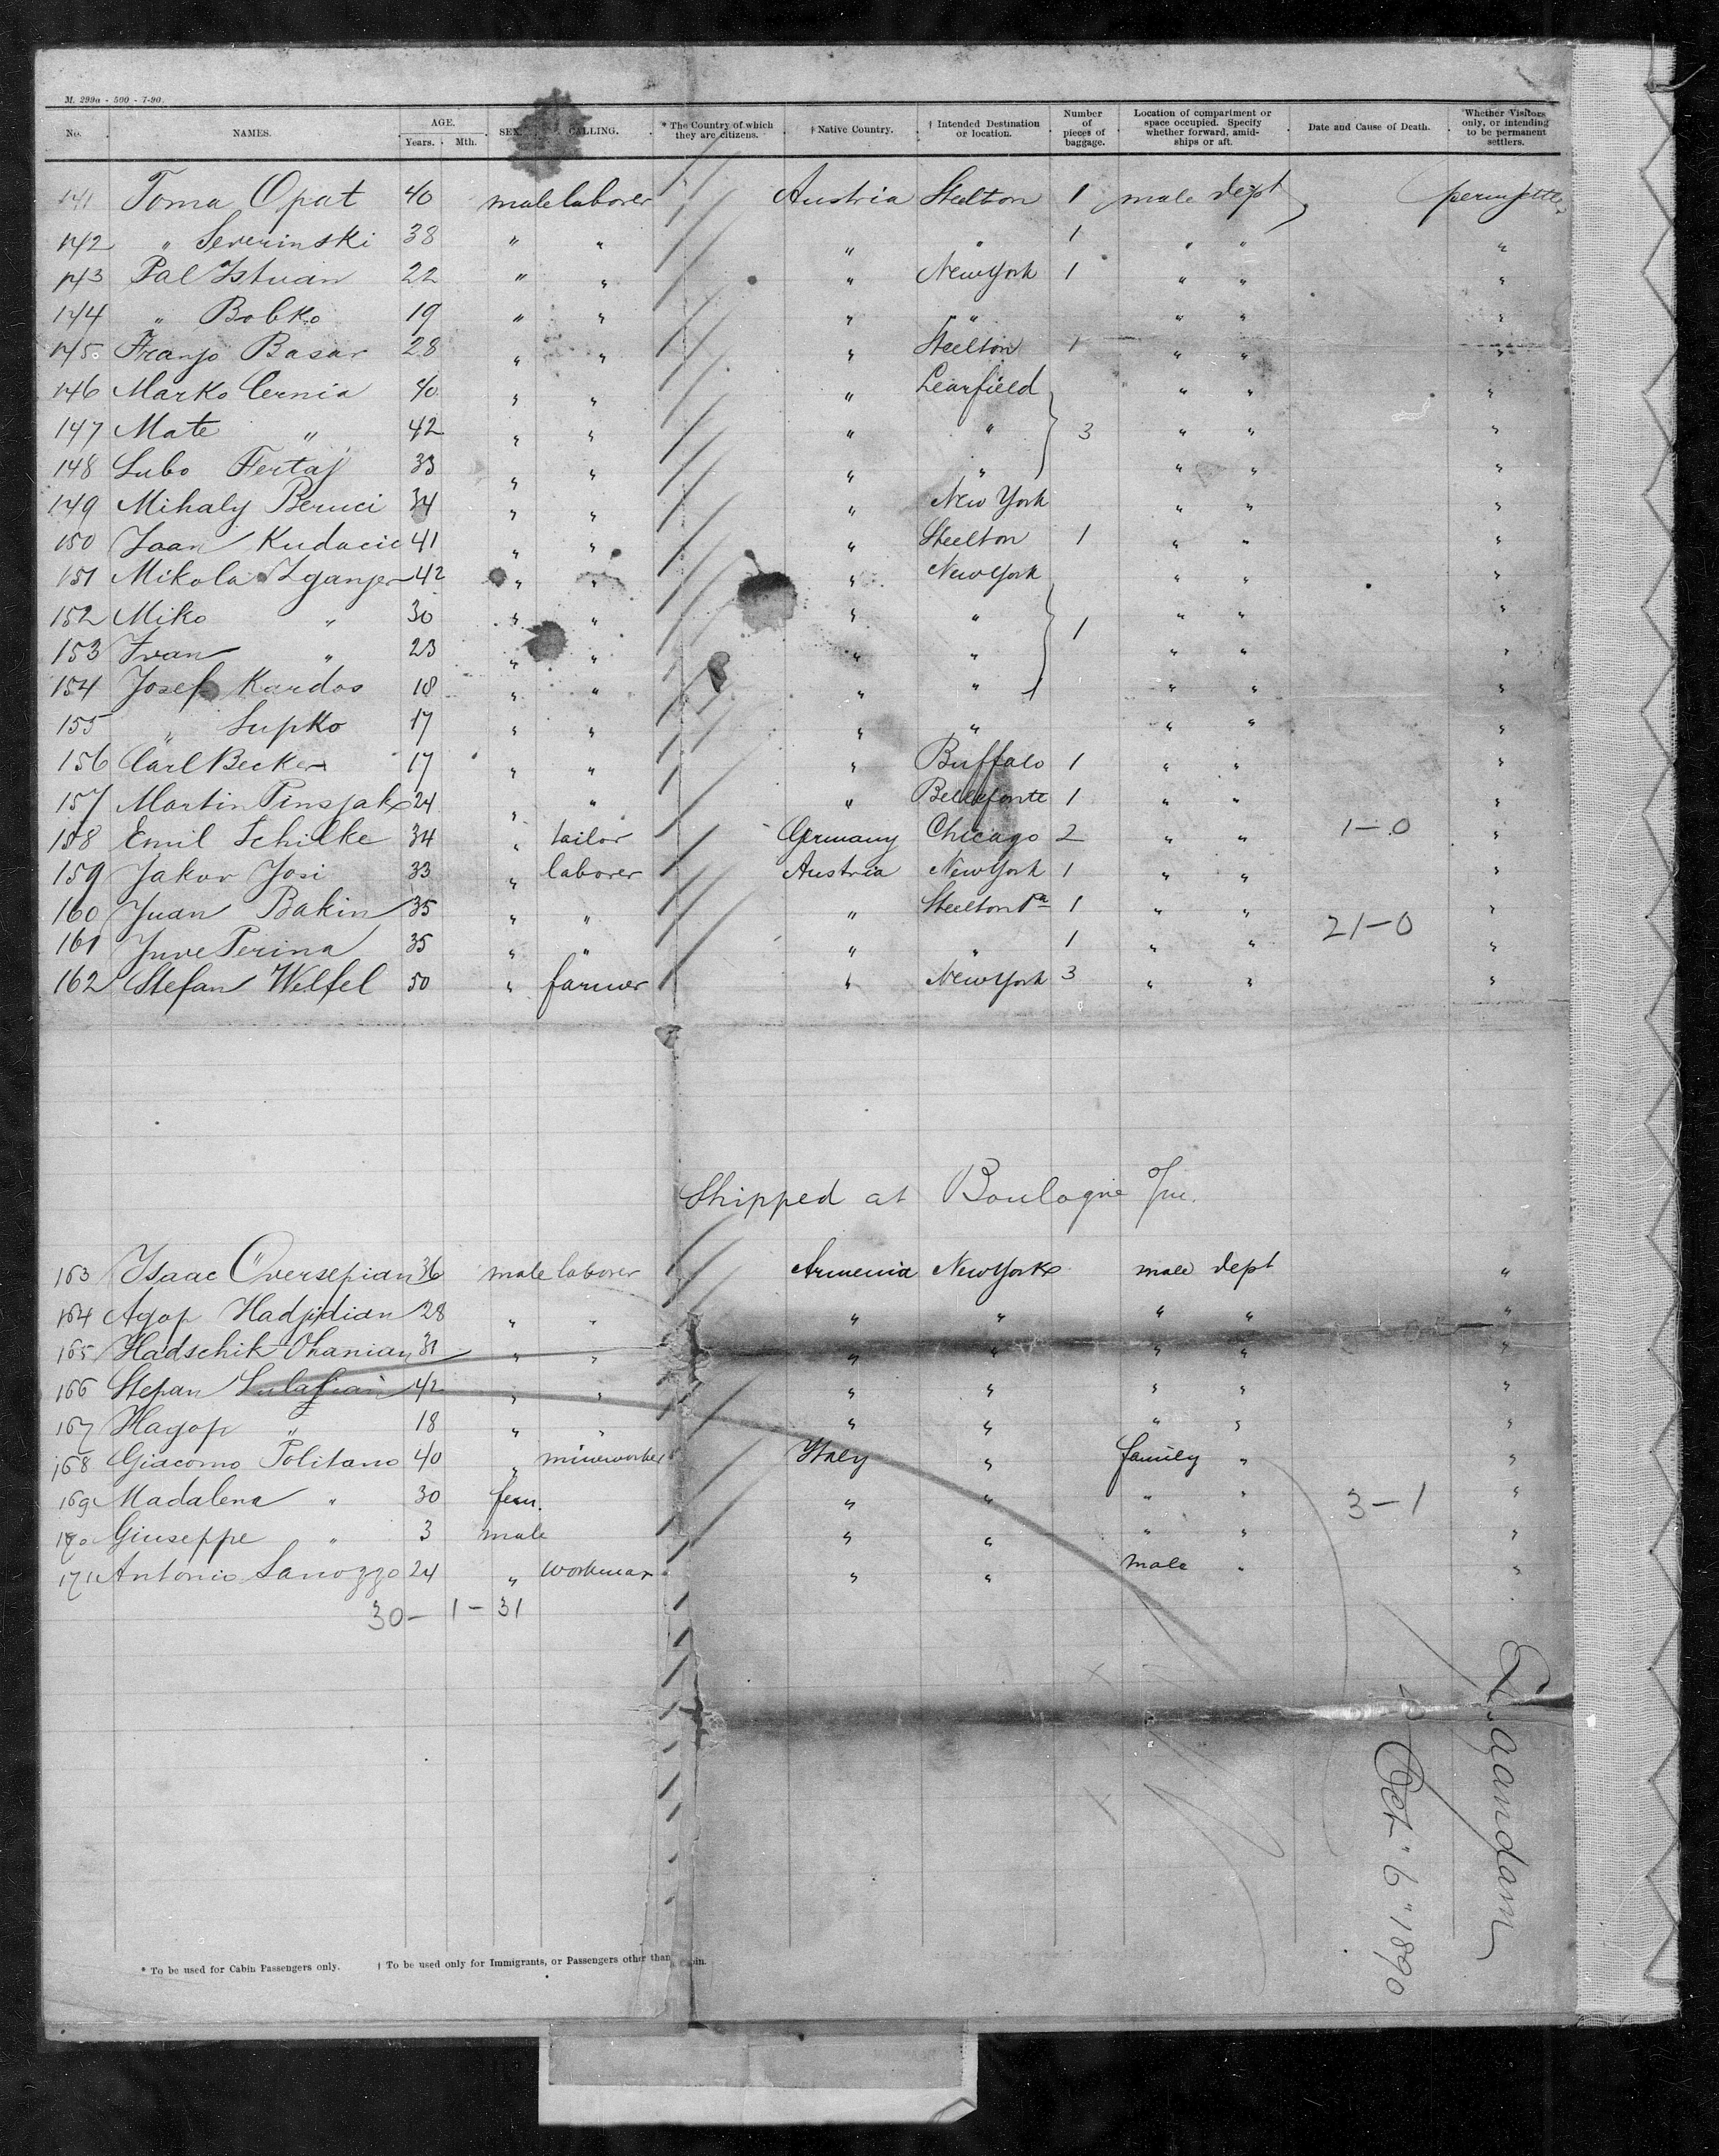 M. 299a - 500 - 7-90.
No. NAMES. AGE. Years. Mth. SEX. CALLING. * The Country of which they are citizens. † Native Country. † Intended Destination or location. Number of pieces of baggage. Location of compartment or space occupied. Specify whether forward, amidships or aft. Date and Cause of Death. Whether Visitors only, or intending to be permanent settlers.
141 Toma Opat 40 male laborer Austria Steelton 1 male dept
142 " Severinski 38 " " " " 1 " " "
143 Pal Istvan 22 " " " New York 1 " " "
144 " Bobko 19 " " " " " " "
145 Franjo Basar 28 " " " Steelton 1 " " "
146 Marko Cernia 40 " " " Learfield " " "
147 Mate " 42 " " " " 3 " " "
148 Lubo Fertaj 33 " " " " " " "
149 Mihaly Beruci 34 " " " New York " " "
150 Kudacic 41 " " " Steelton 1 " " "
151 Mikola Zganjer 42 " " " New York " " "
152 Miko " 30 " " " " 1 " " "
153 Ivan " 23 " " " " " " "
154 Josef Kardos 18 " " " " " " "
155 " Supko 17 " " " " " " "
156 Carl Becker 17 " " " Buffalo 1 " " "
157 Martin 24 " " " Bellefonte 1 " " "
158 Emil Schilke 34 " tailor Germany Chicago 2 " " 1-0 "
159 Jakov Josi 33 " laborer Austria New York 1 " " "
160 Juan Bakin 35 " " " Steelton Pa 1 " " 21-0 "
161 Juve Perina 35 " " " " 1 " " "
162 Stefan Welfel 50 " farmer " New York 3 " " "
Shipped at Boulogne
163 Isaac Oversepian 36 male laborer Armenia New York male dept "
164 Agop Hadjidian 28 " " " " " " "
165 Hadschik Ohanian 31 " " " " " " "
166 Stepan 42 " " " " " " "
167 Hagop " 18 " " " " " " "
168 Giacomo Politano 40 " mineworker Italy " family " "
169 Madalena " 30 fem. " " " " 3-1 "
170 Giuseppe " 3 male " " " " "
171 Antonio Sanozzo 24 " workman " " male " "
30- 1- 31
* To be used for Cabin Passengers only. † To be used only for Immigrants, or Passengers other than Cabin.
Zaandam
Oct " 6 " 1890